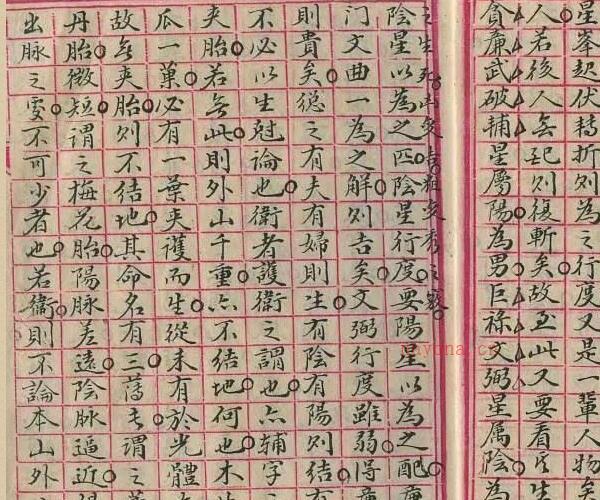 星峯起伏轉折則為之行度又是一輩人物矣
人若後人無記則後斬矣故至此又要看
貪廉武破輔星屬陽為男巨祿文弼星属陰為
之生死
陰星以為之匹陰星行度要陽星以為之配
门文曲一為之解则吉矣文弼行度雖弱得
則貴矣總之有夫有婦則生有陰有陽则结
不必以生尅論也衛者護衛之謂也亦輔字
夹胎若無此則外山千重亦不结地何也木
瓜一菓必有一葉夾護而生從未有於光體
故無夾胎则不结地其命名有三落者谓之
丹胎微短謂之梅花胎陽脉差遠陰脉逼近
出脉之雯不可少者也若衛則不論本山外